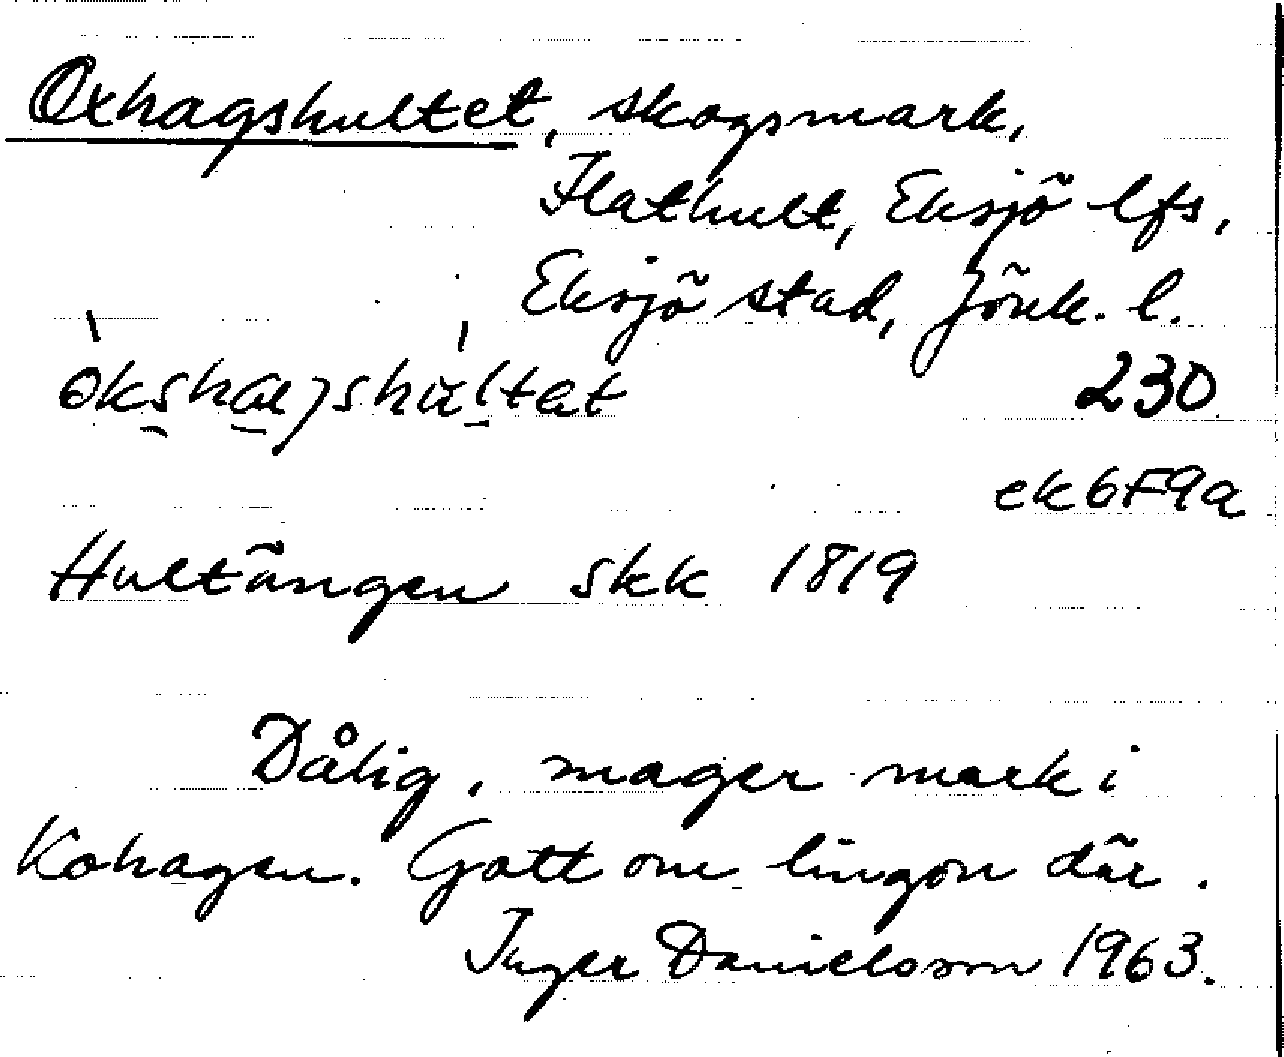 Oxhagshultet, skogsmark,
Flathult, Eksjö lfs,
Eksjö stad, Jönk. l.
230
ek6F9a
Hultängen skk 1819
Dålig, mager mark i
Kohagen. Gott om lingon där.
Inger Danielsson 1963.